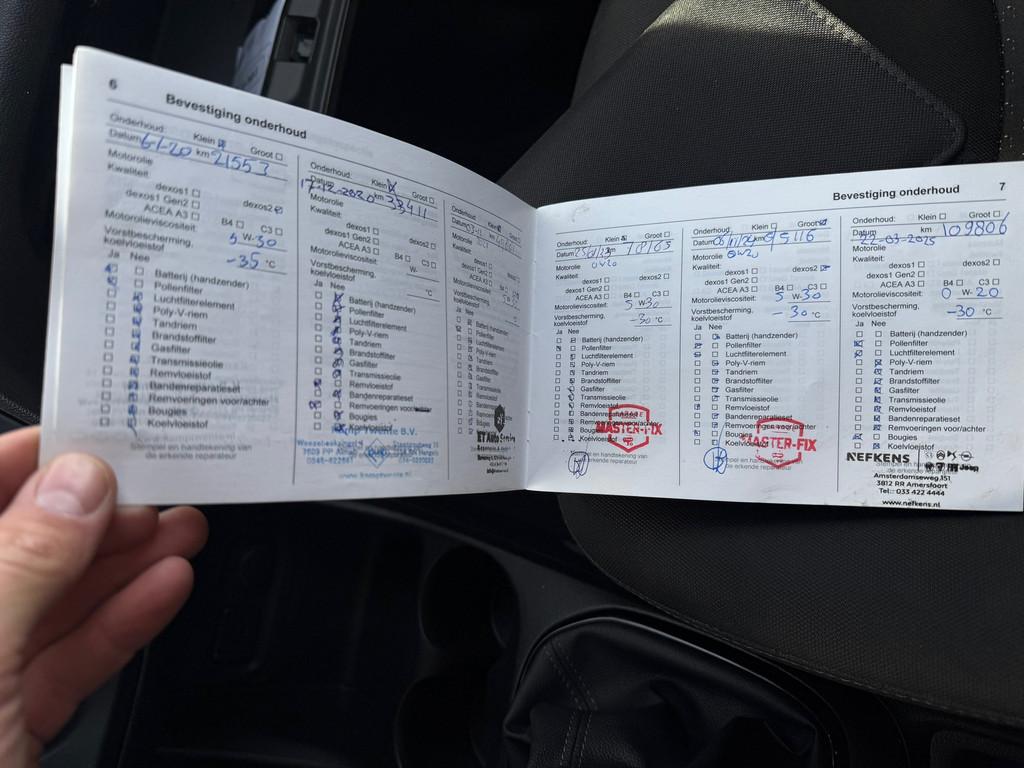 6
Bevestiging onderhoud
Onderhoud: Klein Groot
Datum 6-1-20 km 21553
Motorolie
Kwaliteit:
dexos1
dexos1 Gen2 dexos2
ACEA A3 B4 C3
Motorolieviscositeit: 5 W-30
Vorstbescherming,
koelvloeistof -35 °C
Ja Nee
Batterij (handzender)
Pollenfilter
Luchtfilterelement
Poly-V-riem
Tandriem
Brandstoffilter
Gasfilter
Transmissieolie
Remvloeistof
Bandenreparatieset
Remvoeringen voor/achter
Bougies
Koelvloeistof
Stempel en handtekening van
de erkende reparateur
Onderhoud: Klein Groot
Datum 17-12-2020 km 33411
Motorolie
Kwaliteit:
dexos1
dexos1 Gen2 dexos2
ACEA A3 B4 C3
Motorolieviscositeit: W-
Vorstbescherming,
koelvloeistof °C
Ja Nee
Batterij (handzender)
Pollenfilter
Luchtfilterelement
Poly-V-riem
Tandriem
Brandstoffilter
Gasfilter
Transmissieolie
Remvloeistof
Bandenreparatieset
Remvoeringen voor/achter
Bougies
Koelvloeistof
Twente B.V.
Onderhoud: Klein Groot
Datum km
Motorolie
Kwaliteit:
dexos1
dexos1 Gen2 dexos2
ACEA A3 B4 C3
Motorolieviscositeit:
Vorstbescherming,
koelvloeistof -30 °C
Ja Nee
Batterij (handzender)
Pollenfilter
Luchtfilterelement
Poly-V-riem
Tandriem
Brandstoffilter
Gasfilter
Transmissieolie
Remvloeistof
Bandenreparatieset
Bougies
ET Auto
Bevestiging onderhoud 7
Onderhoud: Klein Groot
Datum km 78165
Motorolie 0W20
Kwaliteit:
dexos1
dexos1 Gen2 dexos2
ACEA A3 B4 C3
Motorolieviscositeit: 5 W-30
Vorstbescherming,
koelvloeistof -30 °C
Ja Nee
Batterij (handzender)
Pollenfilter
Luchtfilterelement
Poly-V-riem
Tandriem
Brandstoffilter
Gasfilter
Transmissieolie
Remvloeistof
Koelvloeistof
MASTER-FIX
de erkende reparateur
Onderhoud: Klein Groot
Datum km
Motorolie 0W20
Kwaliteit:
dexos1
dexos1 Gen2 dexos2
ACEA A3 B4 C3
Motorolieviscositeit: 5 W-30
Vorstbescherming,
koelvloeistof -30 °C
Ja Nee
Batterij (handzender)
Pollenfilter
Luchtfilterelement
Poly-V-riem
Tandriem
Brandstoffilter
Gasfilter
Transmissieolie
Remvloeistof
Bandenreparatieset
Remvoeringen voor/achter
Bougies
MASTER-FIX
de erkende reparateur
Onderhoud: Klein Groot
Datum 22-03-2025 km 109806
Motorolie
Kwaliteit:
dexos1
dexos1 Gen2 dexos2
ACEA A3 B4 C3
Motorolieviscositeit: 0 W-20
Vorstbescherming,
koelvloeistof -30 °C
Ja Nee
Batterij (handzender)
Pollenfilter
Luchtfilterelement
Poly-V-riem
Tandriem
Brandstoffilter
Gasfilter
Transmissieolie
Remvloeistof
Bandenreparatieset
Remvoeringen voor/achter
Bougies
Koelvloeistof
NEFKENS
Jeep
Amsterdamseweg 151
3812 RR Amersfoort
Tel.: 033 422 4444
www.nefkens.nl